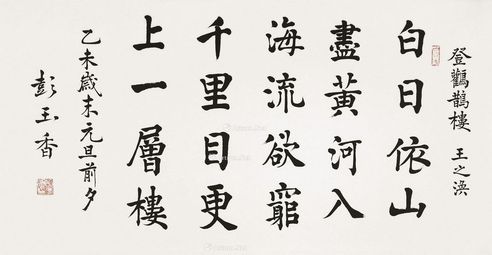 登鸛鵲樓 王之渙
白日依山
盡黃河入
海流欲窮
千里目更
上一層樓
乙未歲末元旦前夕
彭玉香